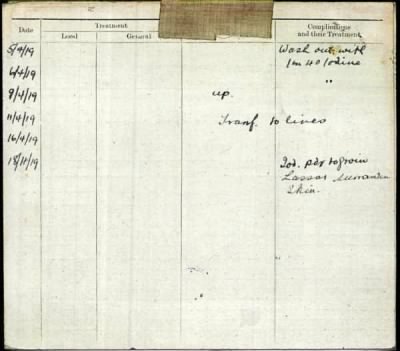 Date
Treatment
Local
General
Complications
and their Treatment
5/4/19 Wash out with
1 in 40 Iodine
6/4/19 "
9/4/19 up.
11/4/19 Tranf. to lines
16/4/19
18/4/19 Iod. pdr to groin
Lassar surrounding
Skin.